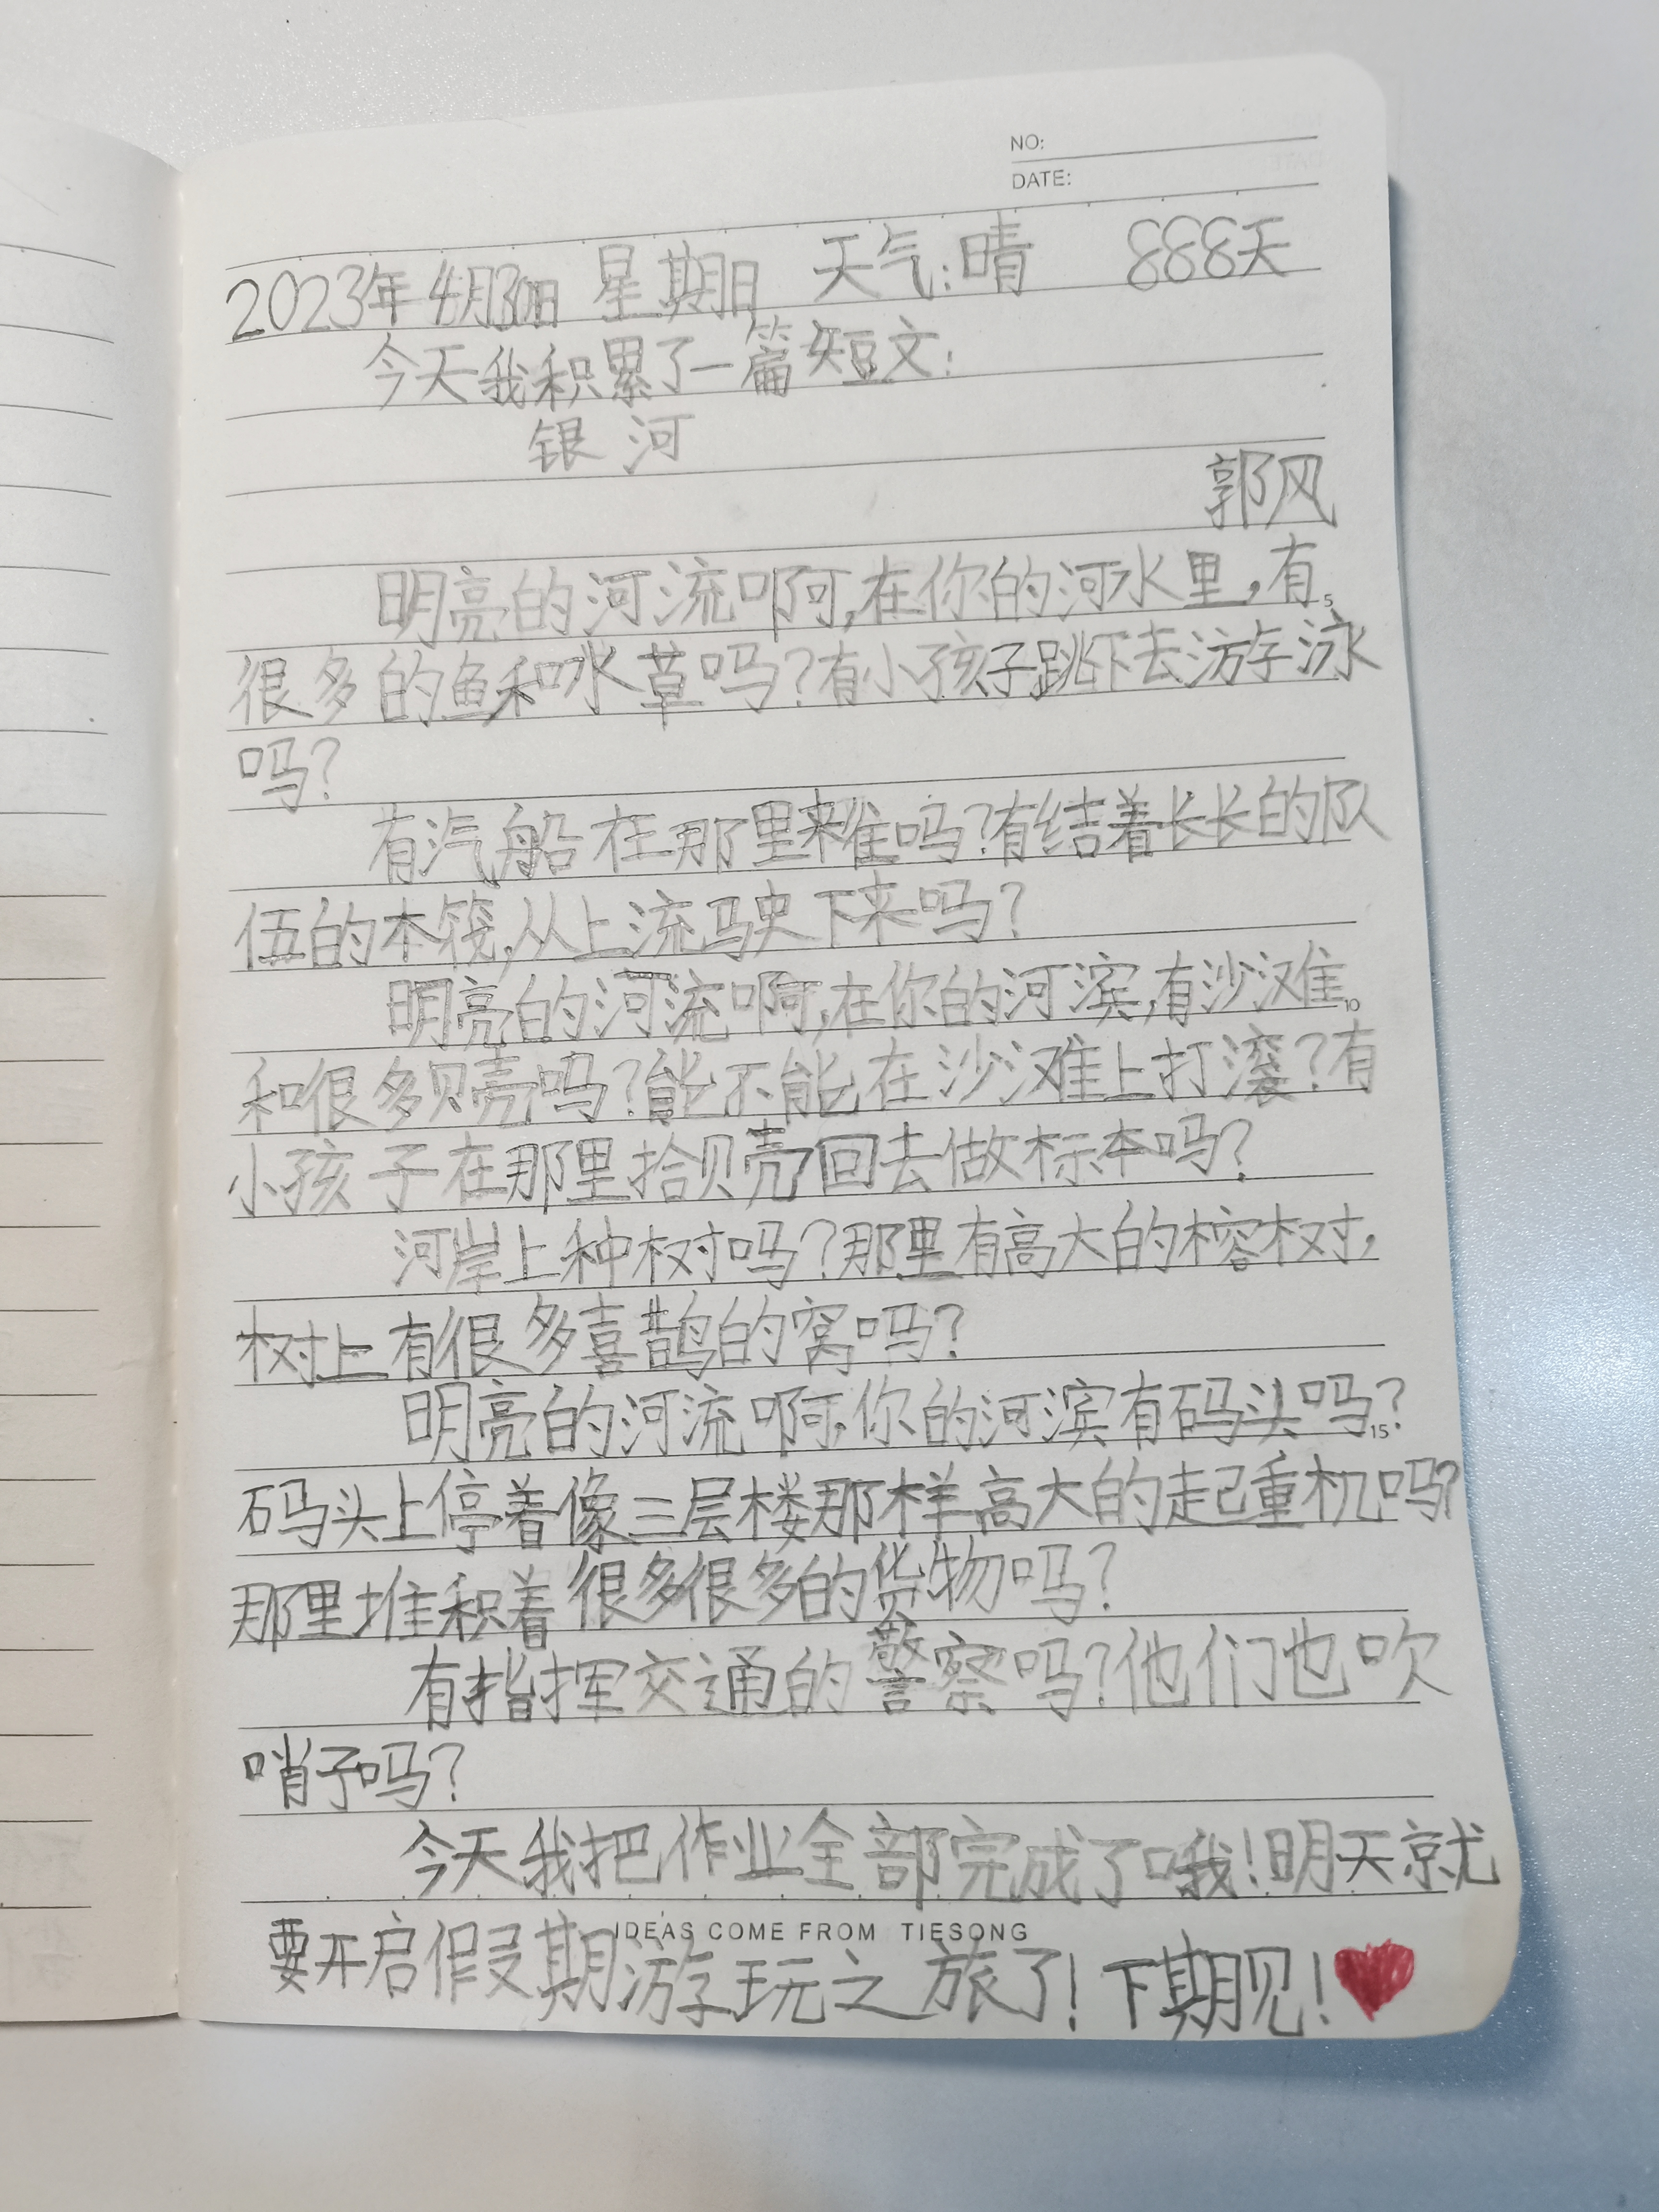 NO:
DATE:
2023年4月30日 星期日 天气:晴 888天
今天我积累了一篇短文:
银河
郭风
明亮的河流啊,在你的河水里,有
5
很多的鱼和水草吗?有小孩子跳下去游泳
吗?
有汽船在那里来往吗?有结着长长的队
伍的木筏,从上流驶下来吗?
明亮的河流啊,在你的河滨,有沙滩
10
和很多贝壳吗?能不能在沙滩上打滚?有
小孩子在那里拾贝壳回去做标本吗?
河岸上种树吗?那里有高大的榕树,
树上有很多喜鹊的窝吗?
明亮的河流啊,你的河滨有码头吗?
15
码头上停着像三层楼那样高大的起重机吗?
那里堆积着很多很多的货物吗?
有指挥交通的警察吗?他们也吹
哨子吗?
今天我把作业全部完成了哦!明天就
IDEAS COME FROM TIESONG
要开启假期游玩之旅了!下期见!